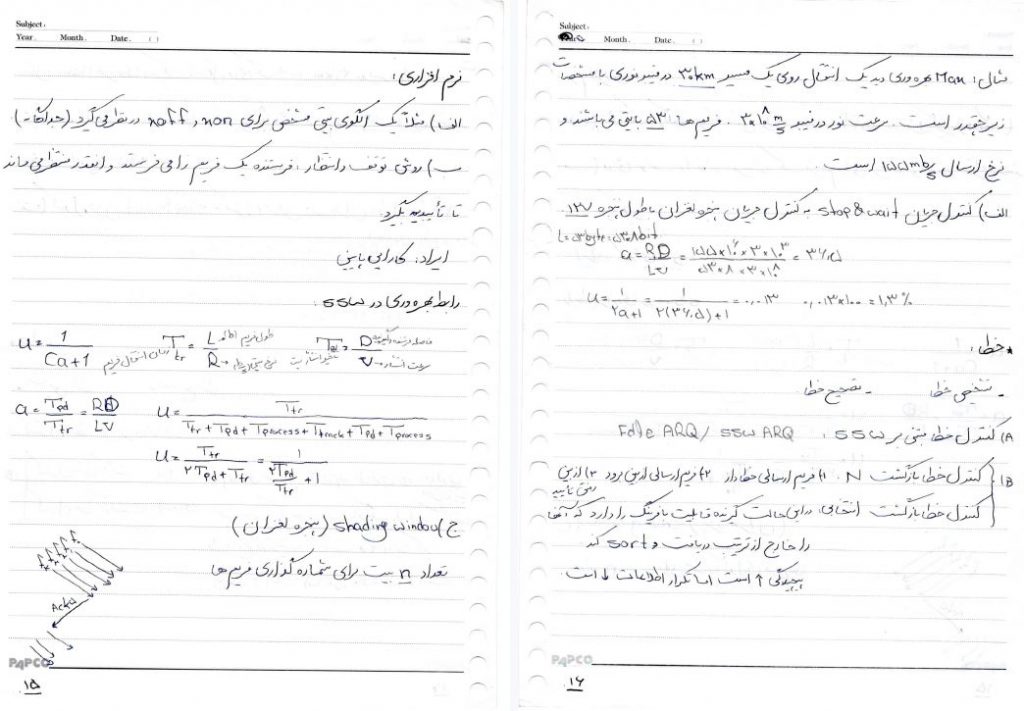 Subject:
Year. Month. Date. ( )
نرم افزاری:
الف) مثلاً یک الگوی بیتی مشخص برای xon و xoff در نظر می گیرد (جداگانه)
ب) روش توقف و انتظار: فرستنده یک فریم را می فرستد و انقدر منتظر می ماند
تا تأییدیه بگیرد
ایراد: کارایی پایین
رابطه بهره وری در SSW:
U = 1 / (2a+1) Ttr = L / R طول فریم سرعت انتقال فریم Tpd = D / V فاصله سرعت انتشار
a = Tpd / Ttr = RD / LV U = Ttr / (Ttr + Tpd + Tprocess + Ttrack + Tpd + Tprocess)
U = Ttr / (۲Tpd + Ttr) = 1 / (۲Tpd/Ttr + 1)
ج) shading window (پنجره لغزان)
تعداد n بیت برای شماره گذاری فریم ها
PAPCO
۱۵
Subject:
Month. Date. ( )
مثال: Max بهره وری در یک انتقال روی یک مسیر ۳۰km در فیبر نوری با مشخصات
زیر چقدر است. سرعت نور در فیبر ۳×۱۰^۸ m/s. فریم ها ۵۳ بایتی می باشند و
نرخ ارسال ۱۵۵mb/s است.
الف) کنترل جریان stop & wait ب) کنترل جریان پنجره لغزان با طول پنجره ۱۲۷
L = ۵۳byte = ۵۳×۸bit
a = RD / LV = (۱۵۵×۱۰^۶ × ۳۰×۱۰^۳) / (۵۳×۸ × ۳×۱۰^۸) = ۳۶.۵
U = ۱ / (۲a+۱) = ۱ / (۲(۳۶.۵)+۱) = ۰.۰۱۳ ۰.۰۱۳×۱۰۰ = ۱.۳%
* خطا:
- تشخیص خطا - تصحیح خطا
A) کنترل خطا مبتنی بر SSW: Idle ARQ / SSW ARQ
B) کنترل خطا بازگشت N: ۱) فریم ارسالی خطا دار ۲) فریم ارسالی از بین برود ۳) از بین
رفتن تأیید
کنترل خطا بازگشت انتخابی: در این حالت گیرنده قابلیت بافرینگ را دارد که آنها
را خارج از ترتیب دریافت و sort کند
پیچیدگی ↑ است اما تکرار اطلاعات ↓ است.
PAPCO
۱۶